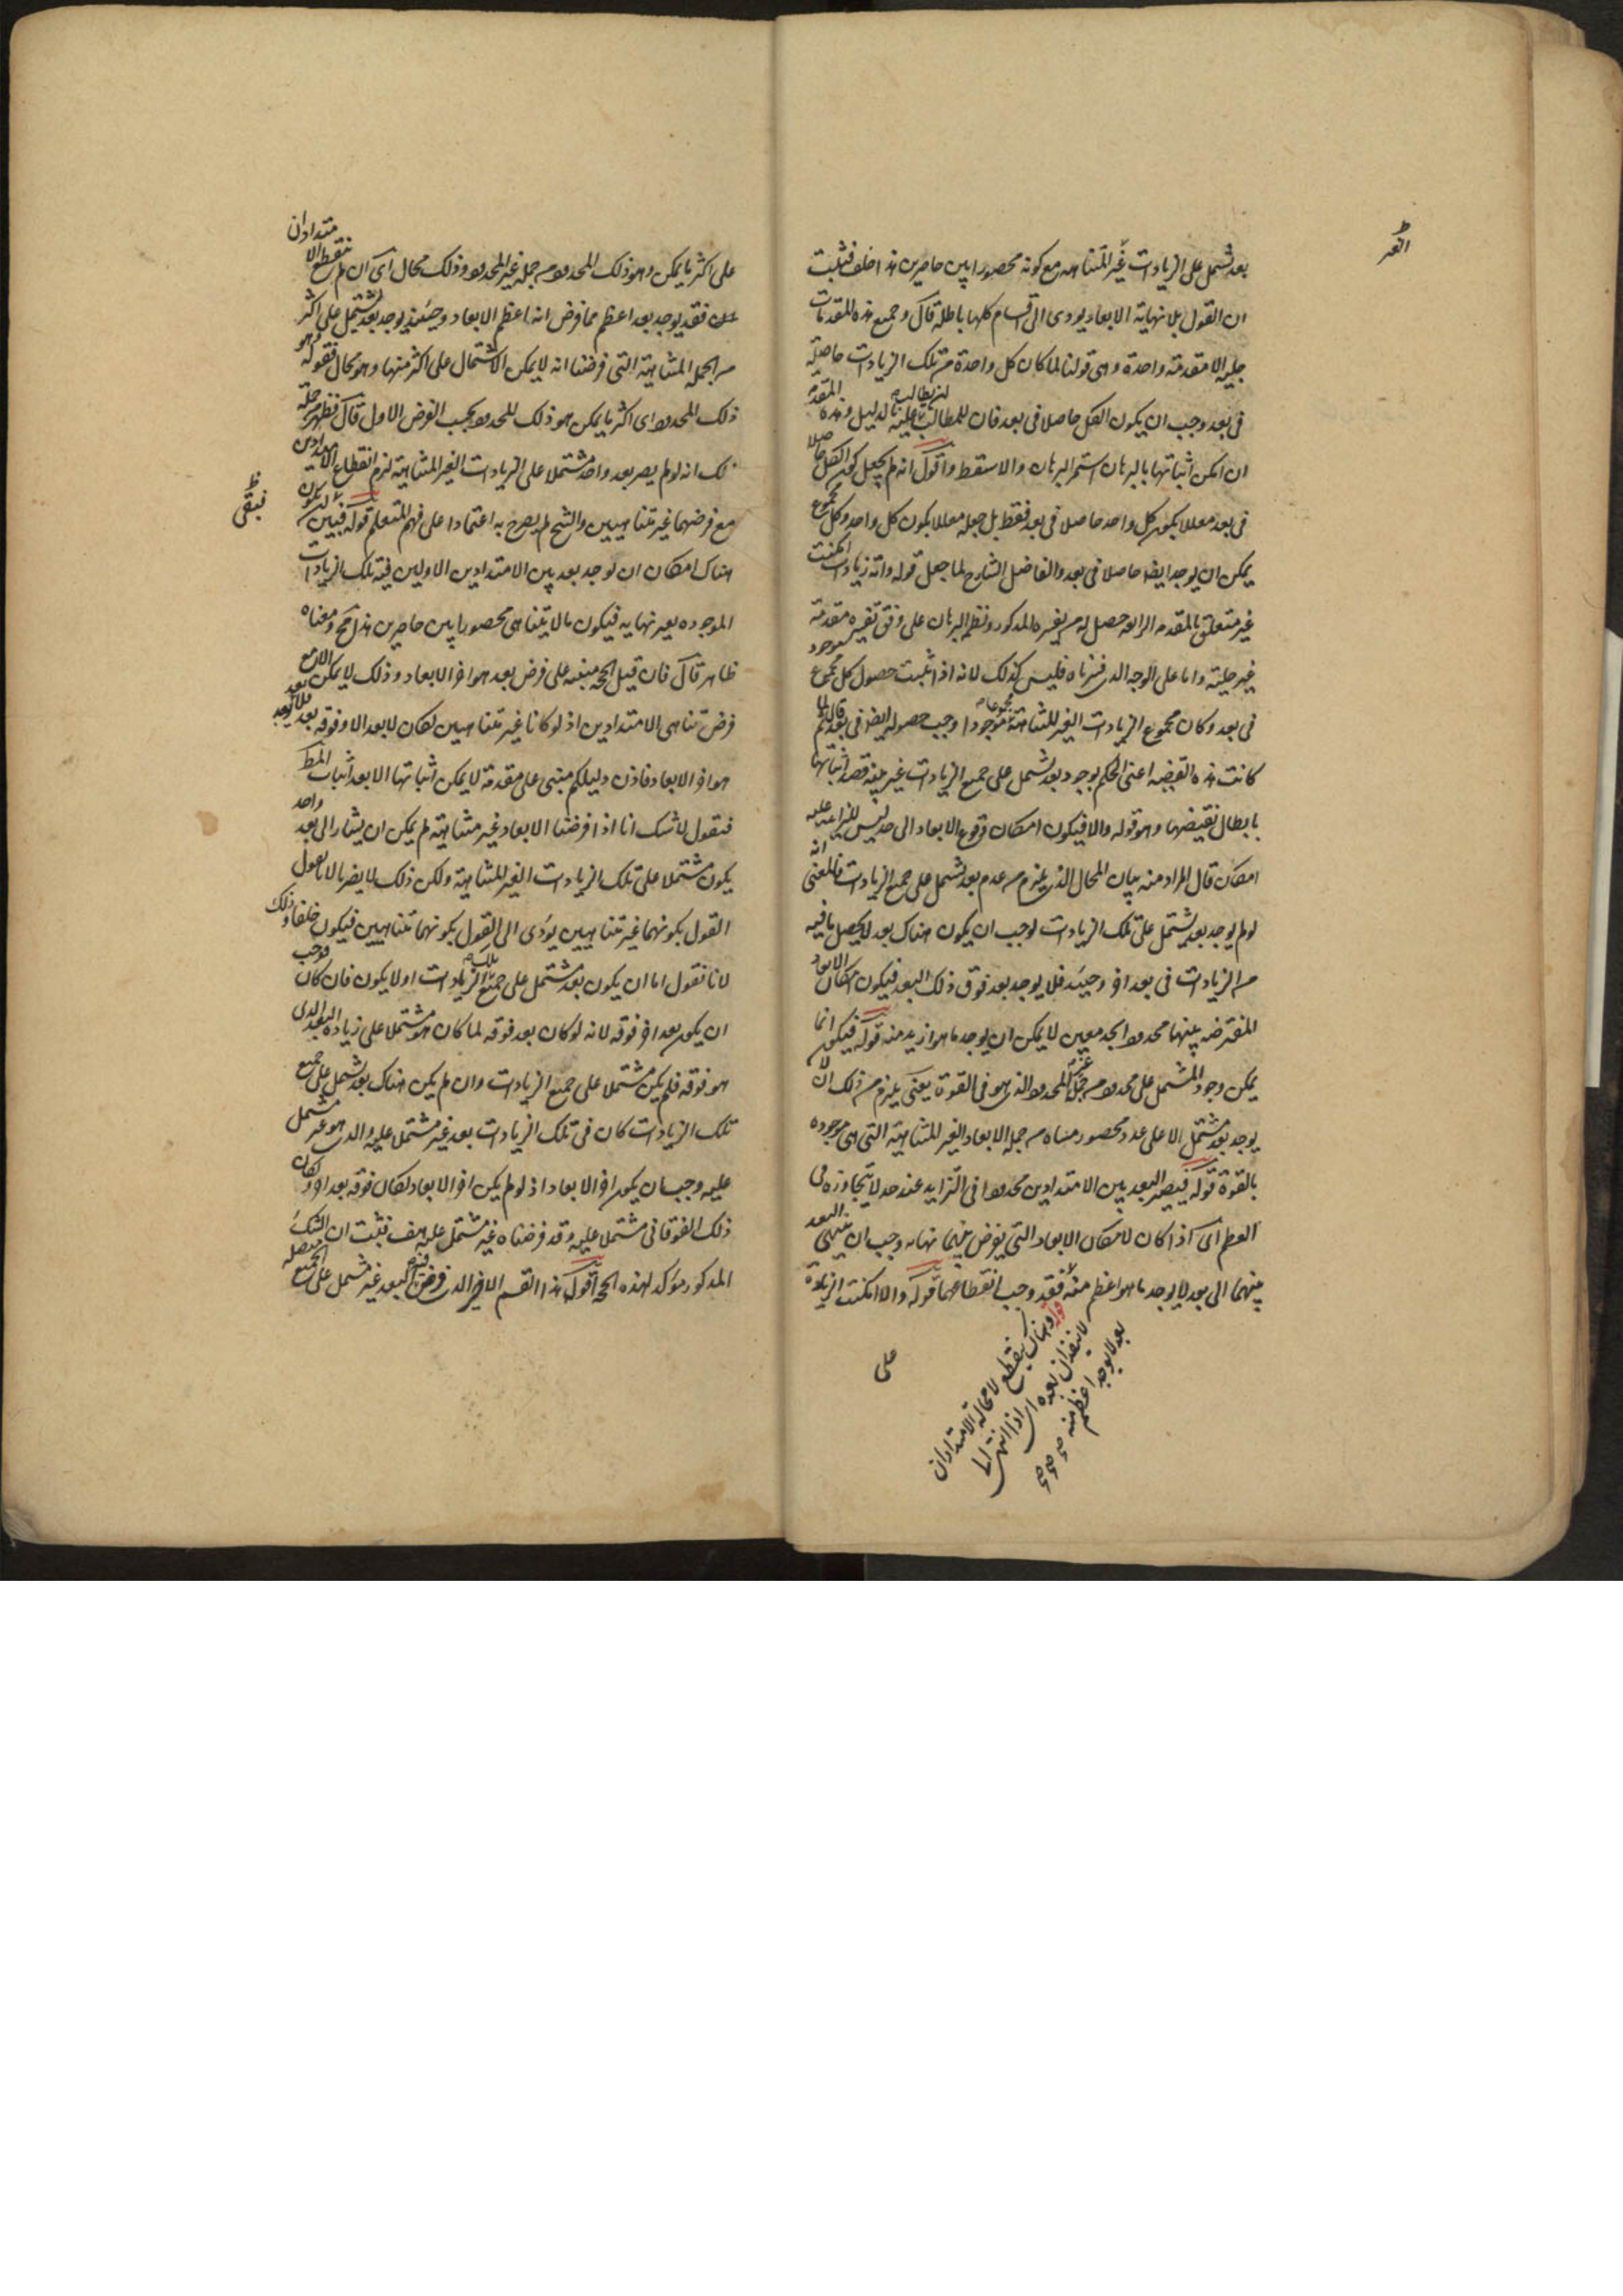 بعد يشتمل على الزيادات غير المتناهيه مع كونه محصورا بين حاصرين هذا خلف فثبت
ان القول بلا نهاية الابعاد يودى الى اقسام كلها باطلة قال وجميع هذه المقدمات
جلية الا مقدمة واحدة وهى قولنا لما كان كل واحدة من تلك الزيادات حاصلة
فى بعد وجب ان يكون الكل حاصلا فى بعد فان للمطالب ان يطالب عليه بالدليل وهذه المقدمة
ان امكن اثباتها بالبرهان استمر البرهان والا سقط واقول انه لم يجعل كون الكل حاصلا
فى بعد معللا بكون كل واحد حاصلا فى بعد فقط بل جعله معللا بكون كل واحد وكل مجموع
يمكن ان يوجد ايضا حاصلا فى بعد والفاضل الشارح لما جعل قوله واية زيادات امكنت
غير متعلق بالمقدمه الرابعه حصل له من تفسيره المذكور ونظم البرهان على وفق تفسيره مقدمة
غير جلية واما على الوجه الذى فسرناه فليس كذلك لانه اذا ثبت حصول كل مجموع موجود
فى بعد وكان مجموع الزيادات الغير المتناهية مجموعا موجودا وجب حصوله ايضا فى بعد قال ثم لما
كانت هذه القضيه اعنى الحكم بوجود بعد يشتمل على جميع الزيادات غير بينة قصد اثباتها
بابطال نقيضها وهو قوله والا فيكون امكان وقوع الابعاد الى حد ليس للزايد عليه
امكان قال المراد منه بيان المحال الذى يلزم من عدم بعد يشتمل على جميع الزيادات فالمعنى انه
لو لم يوجد بعد يشتمل على تلك الزيادات لوجب ان يكون هناك بعد لا يحصل ما فيه
من الزيادات فى بعد اخر وحينئذ فلا يوجد بعد فوق ذلك البعد فيكون امكان الابعاد
المفترضه بينهما محدودا بحد معين لا يمكن ان يوجد ما هو ازيد منه قوله فيكون انما
يمكن وجود المشتمل على محدود من جملة غير المحدود الذى هو فى القوة يعنى يلزم من ذلك ان لا
يوجد بعد مشتمل الا على عدد محصور متناه من جملة الابعاد الغير المتناهية التى هى موجوده
بالقوة قوله فيصير البعد بين الامتدادين محدودا فى التزايد عند حد لا يتجاوزه فى
العظم اى اذا كان لامكان الابعاد التى يفرض بينهما نهاية وجب ان ينتهى البعد
بينهما الى بعد لا يوجد ما هو اعظم منه فقد وجب انقطاعهما قوله والا امكنت الزيادة
قوله وهناك ينقطع لا محالة الامتدادان
لا ينفذان بعده اى اذا انتهى الى
بعد لا يوجد اعظم منه
على
على اكثر ما يمكن وهو ذلك المحدود من جملة غير المحدود وذلك محال اى ان لم ينقطع الامتدادان
فقد يوجد بعد اعظم مما فرض انه اعظم الابعاد وحينئذ يوجد بعد يشتمل على اكثر
من الجملة المتناهية التى فرضنا انه لا يمكن الاشتمال على اكثر منها وهو محال فقوله وهو
ذلك المحدود اى اكثر ما يمكن هو ذلك المحدود بحسب الفرض الاول قال فظهر من جملة
ذلك انه لو لم يصر بعد واحد مشتملا على الزيادات الغير المتناهية لزم انقطاع الامتدادين
مع فرضهما غير متناهيين والشيخ لم يصرح به اعتمادا على فهم المتعلم قوله فبين انه يكون
هناك امكان ان يوجد بعد بين الامتدادين الاولين فيه تلك الزيادات
الموجوده بغير نهايه فيكون ما لا يتناهى محصورا بين حاصرين هذا مح ومعناه
ظاهر قال فان قيل الحجة مبنيه على فرض بعد هو اخر الابعاد وذلك لا يمكن الا مع
فرض تناهى الامتدادين اذ لو كانا غير متناهيين لكان لا بعد الا وفوقه بعد فلا يوجد بعد
هو اخر الابعاد فاذن دليلكم مبنى على مقدمة لا يمكن اثباتها الا بعد اثبات المط
فنقول لا شك انا اذا فرضنا الابعاد غير متناهية لم يمكن ان يشار الى بعد واحد
يكون مشتملا على تلك الزيادات الغير المتناهية ولكن ذلك لا يضرنا لانا نقول
القول بكونهما غير متناهيين يؤدى الى القول بكونهما متناهيين فيكون خلفا وذلك
لانا نقول اما ان يكون بعد مشتمل على جميع تلك الزيادات او لا يكون فان كان فوجب
ان يكون بعد اخر فوقه لانه لو كان بعد فوقه لما كان هو مشتملا على زيادة البعد الذى
هو فوقه فلم يكن مشتملا على جميع الزيادات وان لم يكن هناك بعد يشتمل على جميع
تلك الزيادات كان فى تلك الزيادات بعد غير مشتمل عليه والذى هو غير مشتمل
عليه وجب ان يكون اخر الابعاد اذ لو لم يكن اخر الابعاد لكان فوقه بعد اخر ولكان
ذلك الفوقانى مشتملا عليه وقد فرضناه غير مشتمل عليه هف فثبت ان الشك
المذكور مؤكد لهذه الحجة اقول هذا القسم الاخير الذى فرض فيه البعد غير مشتمل على الجميع